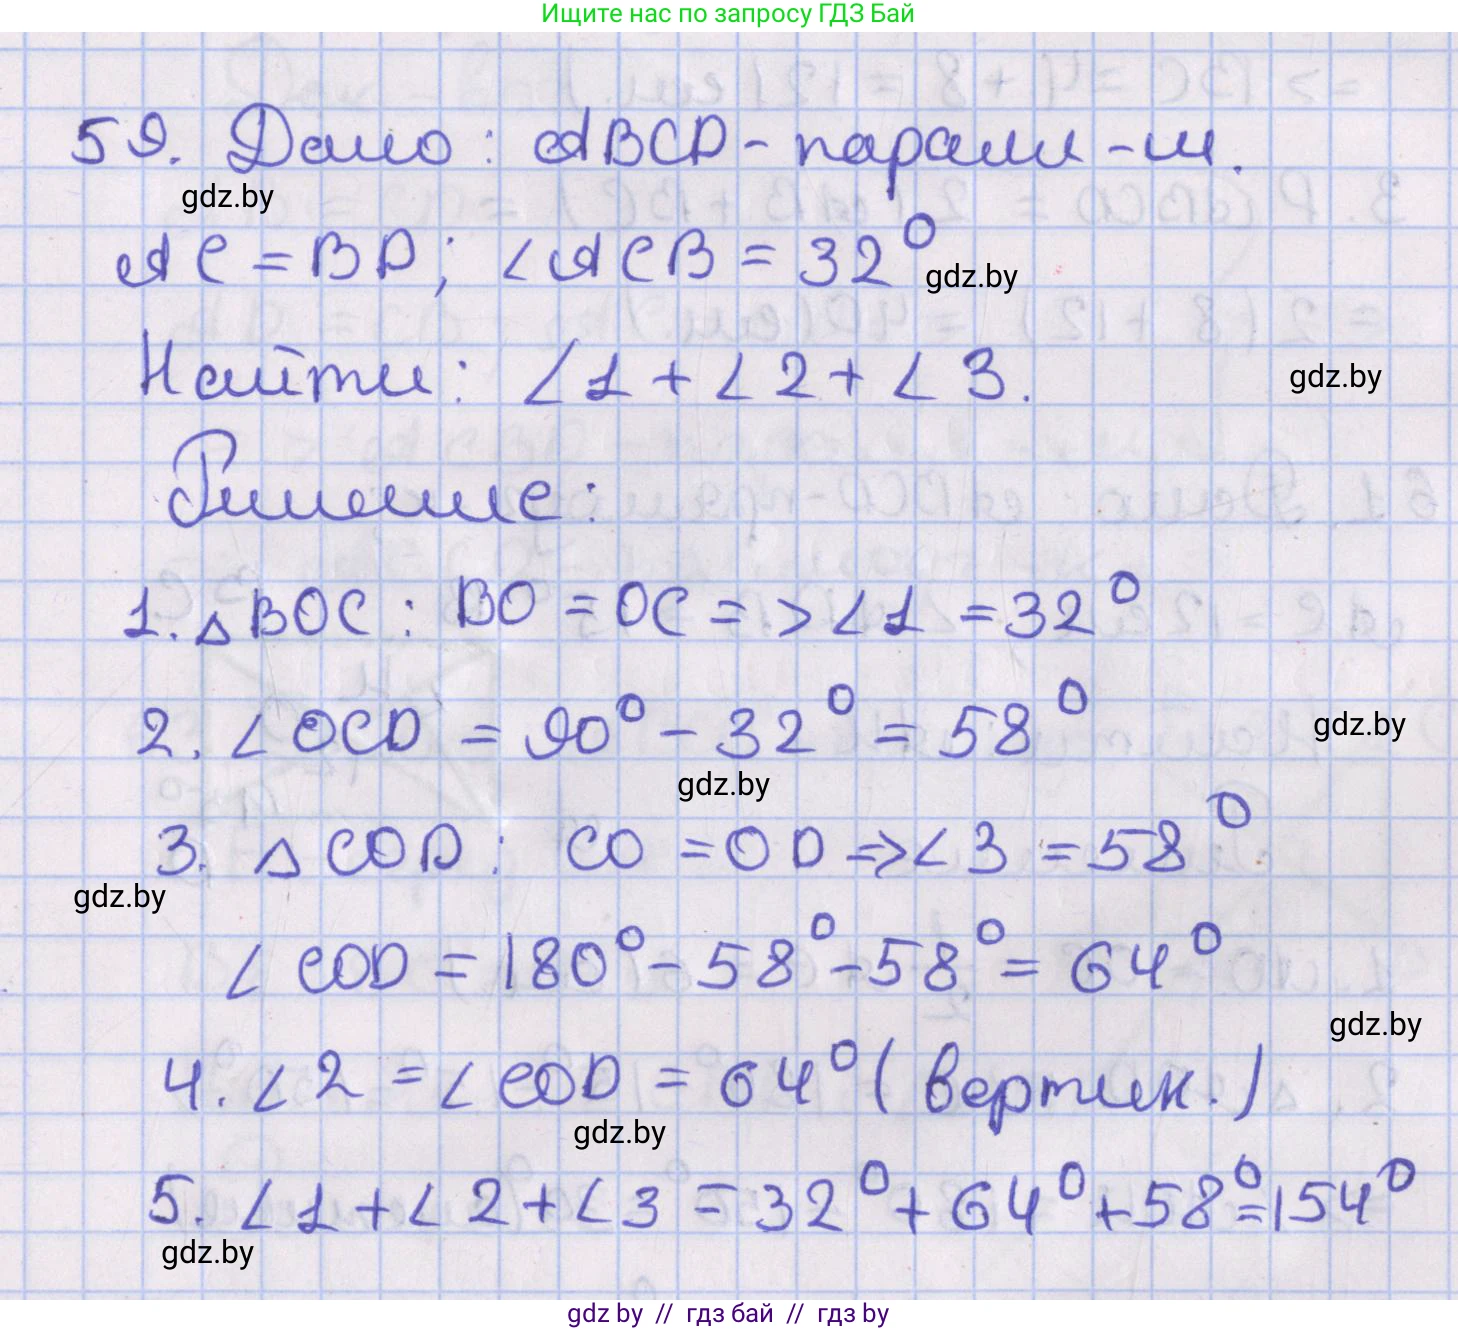 Ищите нас по запросу ГДЗ Бай
59. Дано: ABCD - паралл-м.
gdz.by
AC = BD; ∠ACB = 32°
gdz.by
Найти: ∠1 + ∠2 + ∠3.
gdz.by
Решение:
1. △BOC: BO = OC => ∠1 = 32°
2. ∠OCD = 90° - 32° = 58°
gdz.by
gdz.by
3. △COD: CO = OD => ∠3 = 58°
gdz.by
∠COD = 180° - 58° - 58° = 64°
gdz.by
4. ∠2 = ∠COD = 64° (вертик.)
gdz.by
5. ∠1 + ∠2 + ∠3 = 32° + 64° + 58° = 154°
gdz.by
gdz by // гдз бай // гдз by